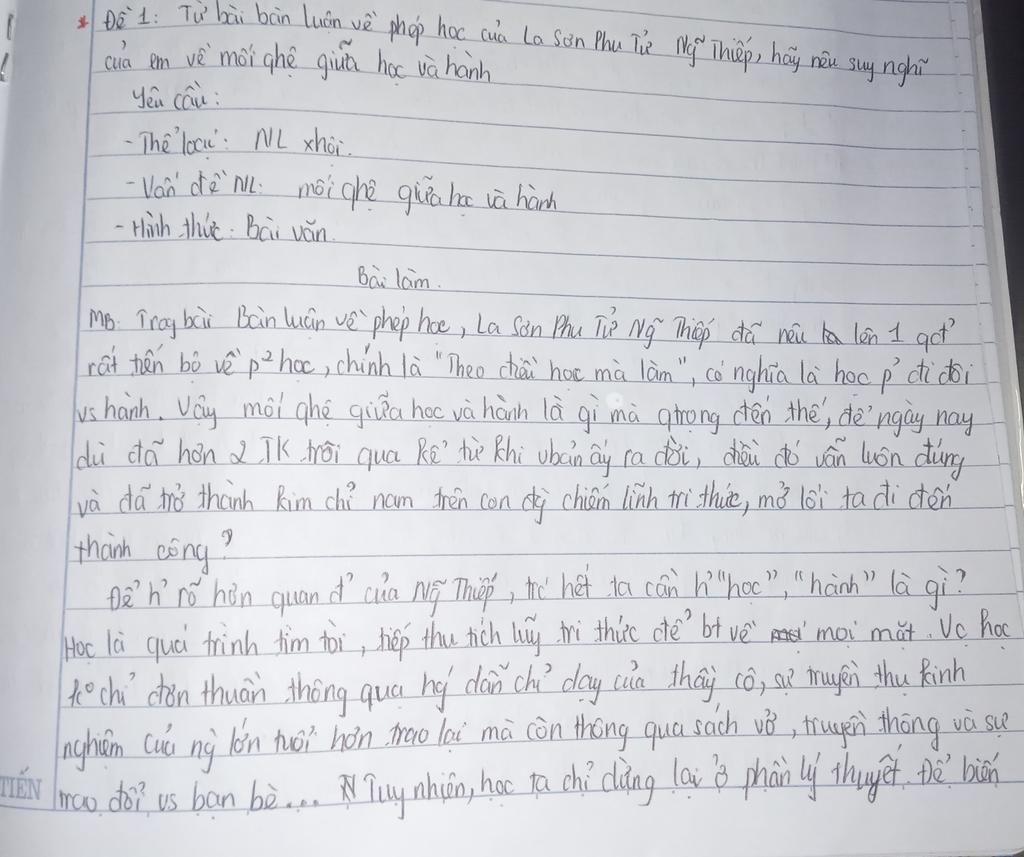 * Đề 1: Từ bài bàn luận về phép học của La Sơn Phu Tử Ngỹ Thiếp, hãy nêu suy nghĩ
của em về mối qhệ giữa học và hành
Yêu cầu:
- Thể loại: NL xhội.
- Vấn đề NL: mối qhệ giữa học và hành
- Hình thức: Bài văn.
Bài làm.
MB. Trog bài Bàn luận về phép học, La Sơn Phu Tử Ngỹ Thiếp đã nêu lên 1 qđ'
rất tiến bộ về p² học, chính là "Theo điều học mà làm", có nghĩa là học p' đi đôi
vs hành. Vậy mối qhệ giữa học và hành là gì mà qtrọng đến thế, để ngày nay
dù đã hơn 2 TK trôi qua kể từ khi vbản ấy ra đời, điều đó vẫn luôn đúng
và đã trở thành kim chỉ nam trên con đg chiếm lĩnh tri thức, mở lối ta đi đến
thành công?
Để h' rõ hơn quan đ' của Ngỹ Thiếp, trc hết ta cần h' "học", "hành" là gì?
Học là quá trình tìm tòi, tiếp thu tích lũy tri thức để bt về mọi mặt. Vc học
k° chỉ đơn thuần thông qua hg dẫn chỉ dạy của thầy cô, sự truyền thụ kinh
nghiệm của ng lớn tuổi hơn trao lại mà còn thông qua sách vở, truyền thông và sự
trao đổi vs bạn bè... Tuy nhiên, học ta chỉ dừng lại ở phần lý thuyết. Để biến
TIẾN